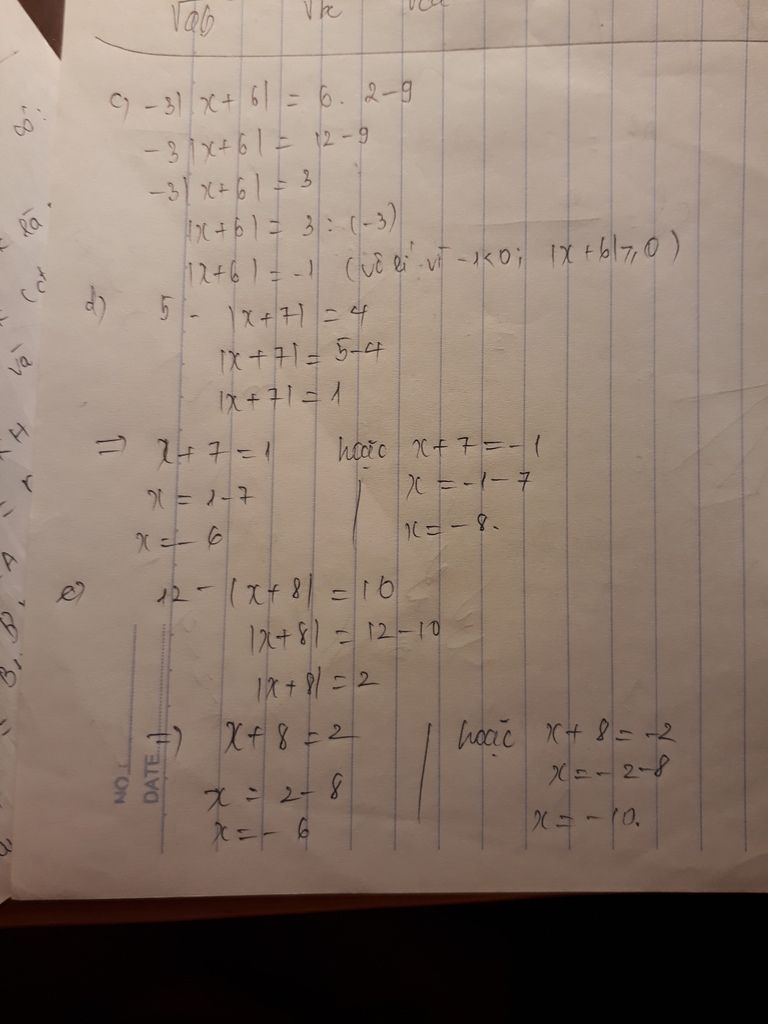 √ab √bc √ca
c) -3|x+6| = 6. 2-9
-3|x+6| = 12-9
-3|x+6| = 3
|x+6| = 3:(-3)
|x+6| = -1 (vô lí vì -1<0; |x+6|≥0)
d) 5 - |x+7| = 4
|x+7| = 5-4
|x+7| = 1
=> x+7 = 1 hoặc x+7 = -1
x = 1-7 x = -1-7
x = -6 x = -8.
e) 12 - |x+8| = 10
|x+8| = 12-10
|x+8| = 2
=> x+8 = 2 hoặc x+8 = -2
x = 2-8 x = -2-8
x = -6 x = -10.
NO.:
DATE